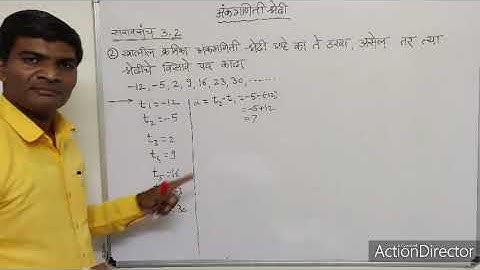 अंकगणिती श्रेढी
सरावसंच 3.2
② खालील क्रमिका अंकगणिती श्रेढी आहे का ते ठरवा, असेल तर त्या
श्रेढीचे विसावे पद काढा
-12, -5, 2, 9, 16, 23, 30, ......
t₁ = -12
= t₂ - t₁ = -5-(-12)
= -5+12
= 7
t₂ = -5
t₃ = 2
t₄ = 9
t₅ = 16
ActionDirector